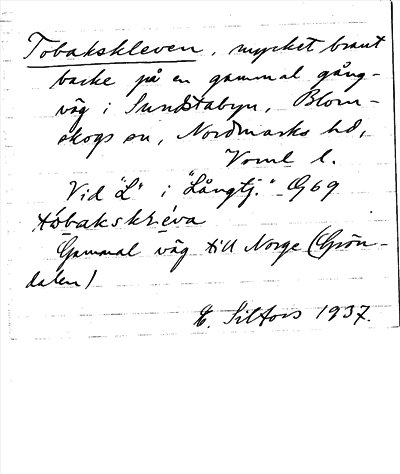 Tobakskleven, mycket brant
backe på en gammal gång-
väg i Sundstabyn, Blom-
skogs sn, Nordmarks hd,
Verml l.
Vid "L" i "Långtj." G69
tobakskleva
Gammal väg till Norge (Grön-
dalen)
E. Silfors 1937.